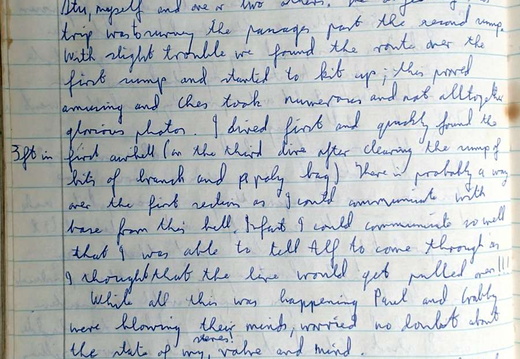 myself and one or two others. The
trip was surveying the passages past the second sump.
With slight trouble we found the route over the
first sump and started to kit up; this proved
amusing and Ches took numerous and not alltogether
glorious photos. I dived first and quickly found the
3ft in first airbell (on the third dive after clearing the sump of
bits of branch and poly bag) There is probably a way
over the first section as I could communicate with
base from this bell. Infact I could communicate so well
that I was able to tell Alf to come through as
I thought that the line would get pulled over!!!
While all this was happening Paul and
were blowing their minds, worried no doubt about
the state of my, valve and mind.